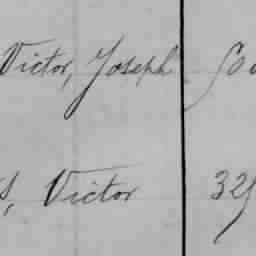 Victor, Joseph
s, Victor 325